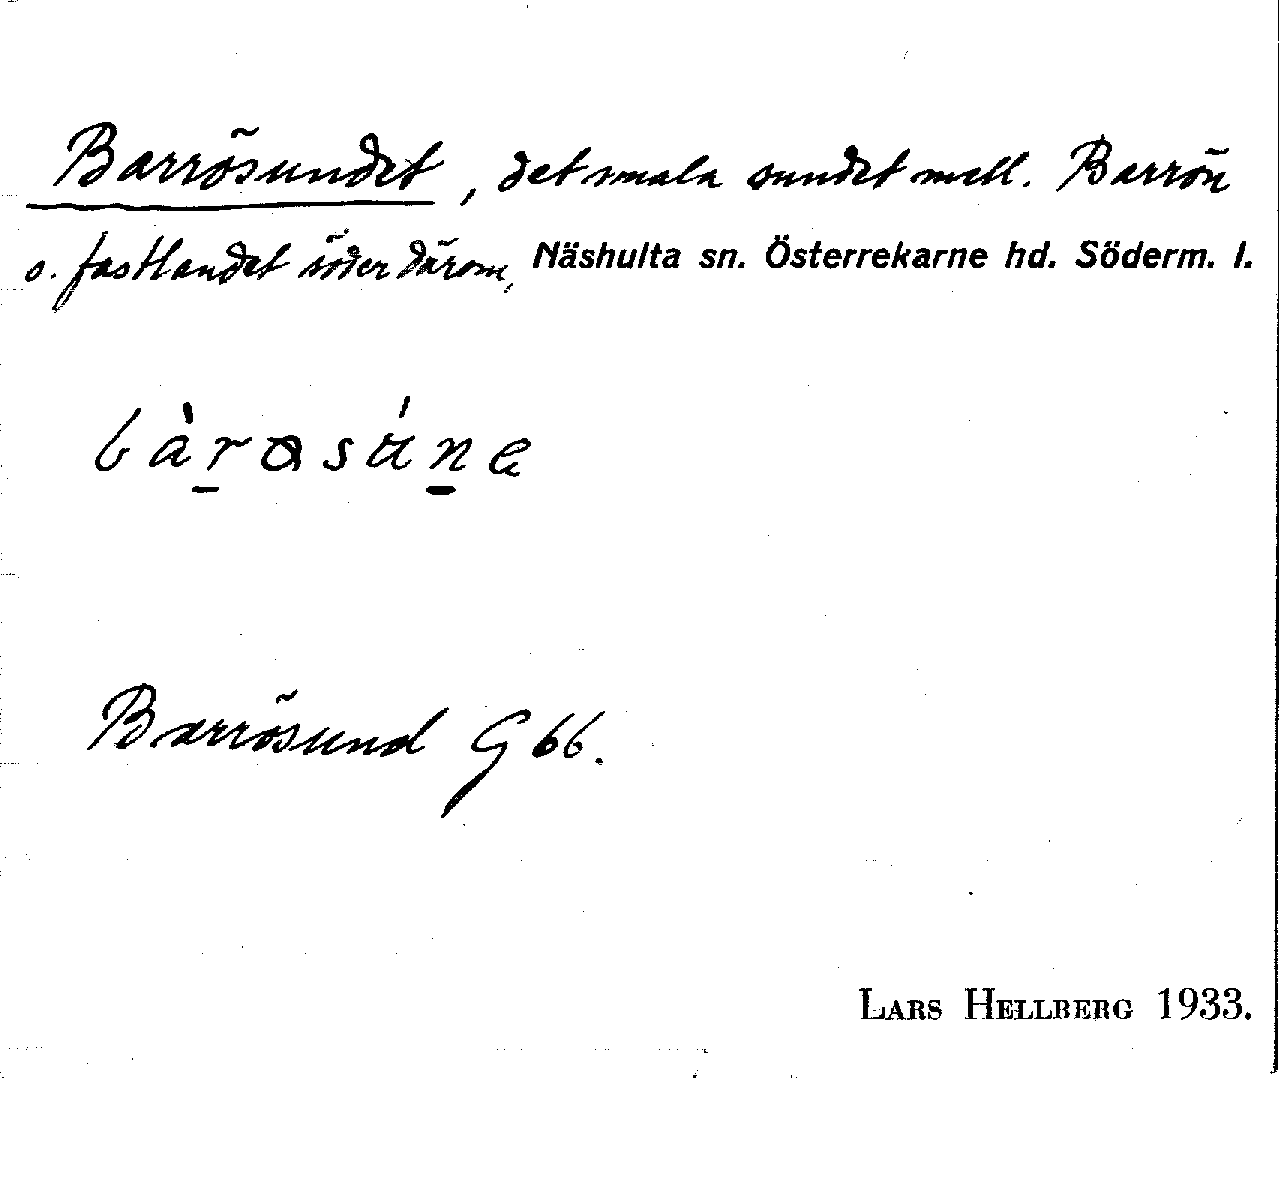 Barrösundet, det smala sundet mell. Barrön
o. fastlandet söder därom, Näshulta sn. Österrekarne hd. Söderm. l.
Barrösund G 66.
LARS HELLBERG 1933.